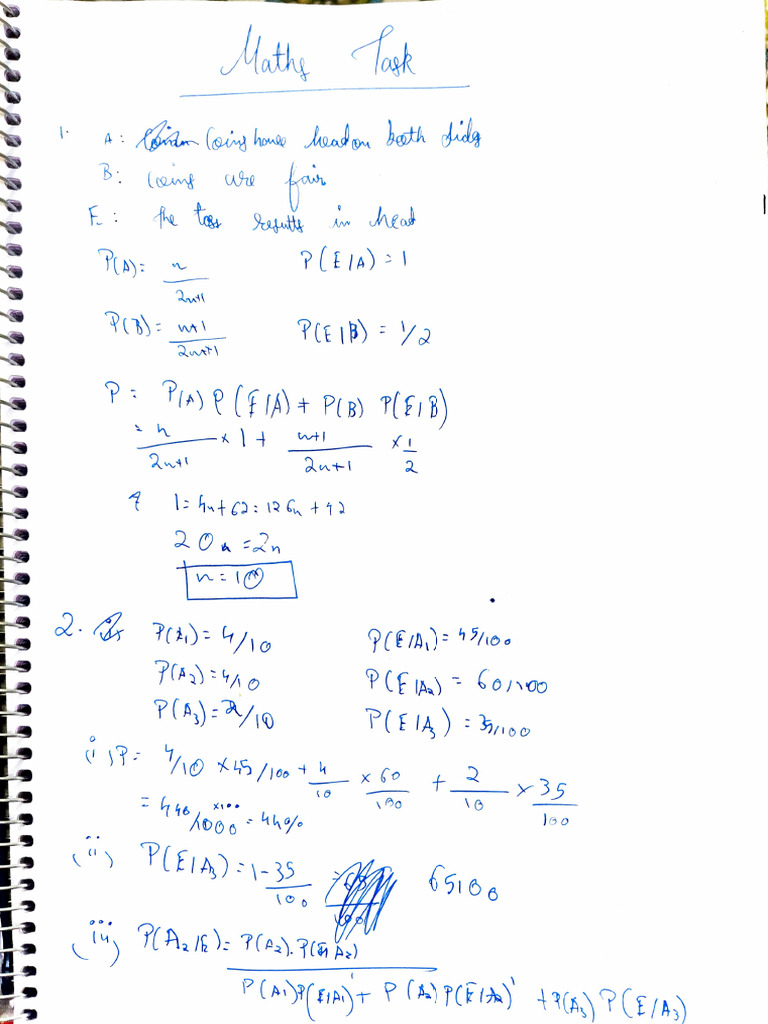 Maths Task
1. A: Coins have head on both sides
B: Coins are fair
E: the toss results in head
P(A) = n/2n+1 P(E/A) = 1
P(B) = n+1/2n+1 P(E/B) = 1/2
P = P(A) P(E/A) + P(B) P(E/B)
= n/2n+1 × 1 + n+1/2n+1 × 1/2
1 = 4n + 62 = 126n + 42
20 = 2n
n = 10
2. P(A1) = 4/10 P(E/A1) = 45/100
P(A2) = 4/10 P(E/A2) = 60/100
P(A3) = 2/10 P(E/A3) = 35/100
(i) P = 4/10 × 45/100 + 4/10 × 60/100 + 2/10 × 35/100
= 440/1000 ×100 = 44%
(ii) P(E/A3) = 1 - 35/100 65100
(iii) P(A2/E) = P(A2).P(E/A2)
P(A1)P(E/A1)' + P(A2)P(E/A2)' + P(A3) P(E/A3)